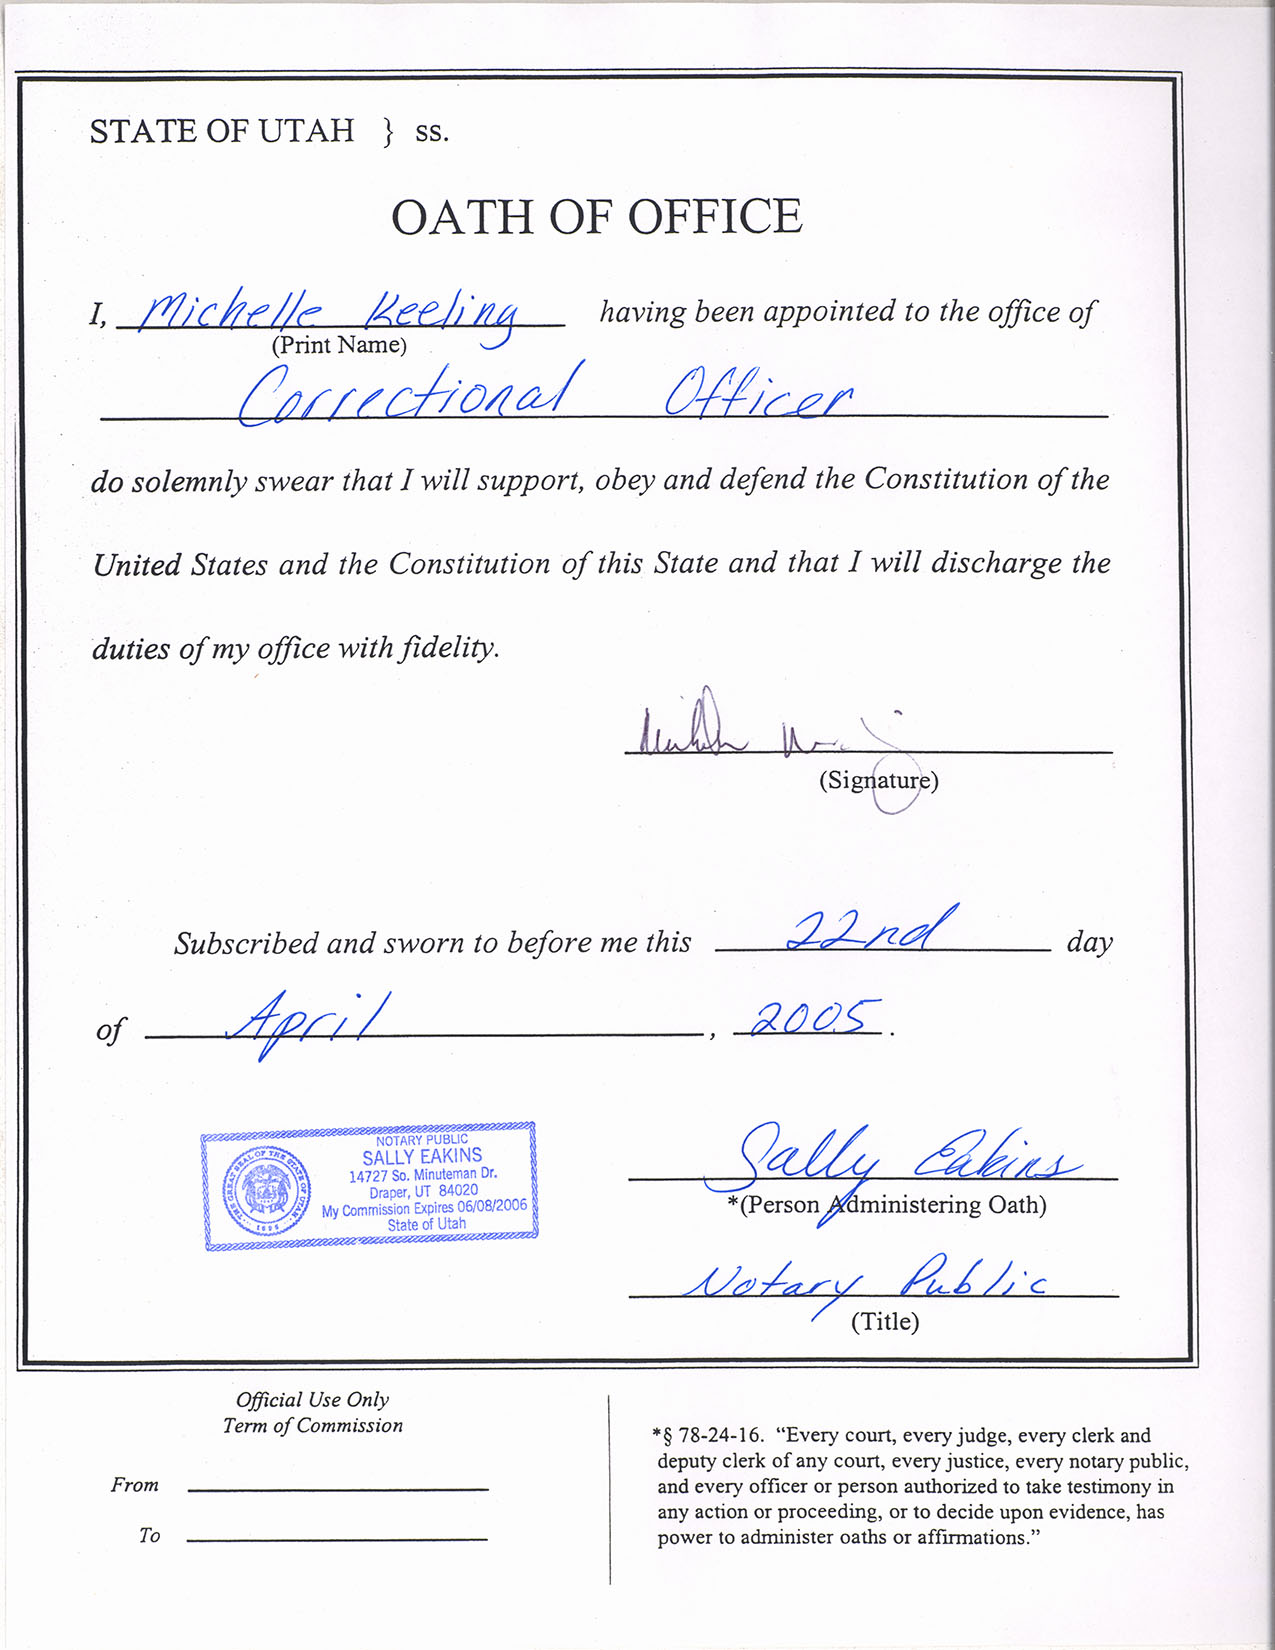 STATE OF UTAH } ss.
OATH OF OFFICE
I, Michelle Keeling having been appointed to the office of
(Print Name)
Correctional Officer
do solemnly swear that I will support, obey and defend the Constitution of the
United States and the Constitution of this State and that I will discharge the
duties of my office with fidelity.
(Signature)
Subscribed and sworn to before me this 22nd day
of April, 2005.
NOTARY PUBLIC
SALLY EAKINS
14727 So. Minuteman Dr.
Draper, UT 84020
My Commission Expires 06/08/2006
State of Utah
THE GREAT SEAL OF THE STATE OF UTAH
1896
Sally Eakins
*(Person Administering Oath)
Notary Public
(Title)
Official Use Only
Term of Commission
From
To
*§ 78-24-16. “Every court, every judge, every clerk and
deputy clerk of any court, every justice, every notary public,
and every officer or person authorized to take testimony in
any action or proceeding, or to decide upon evidence, has
power to administer oaths or affirmations.”